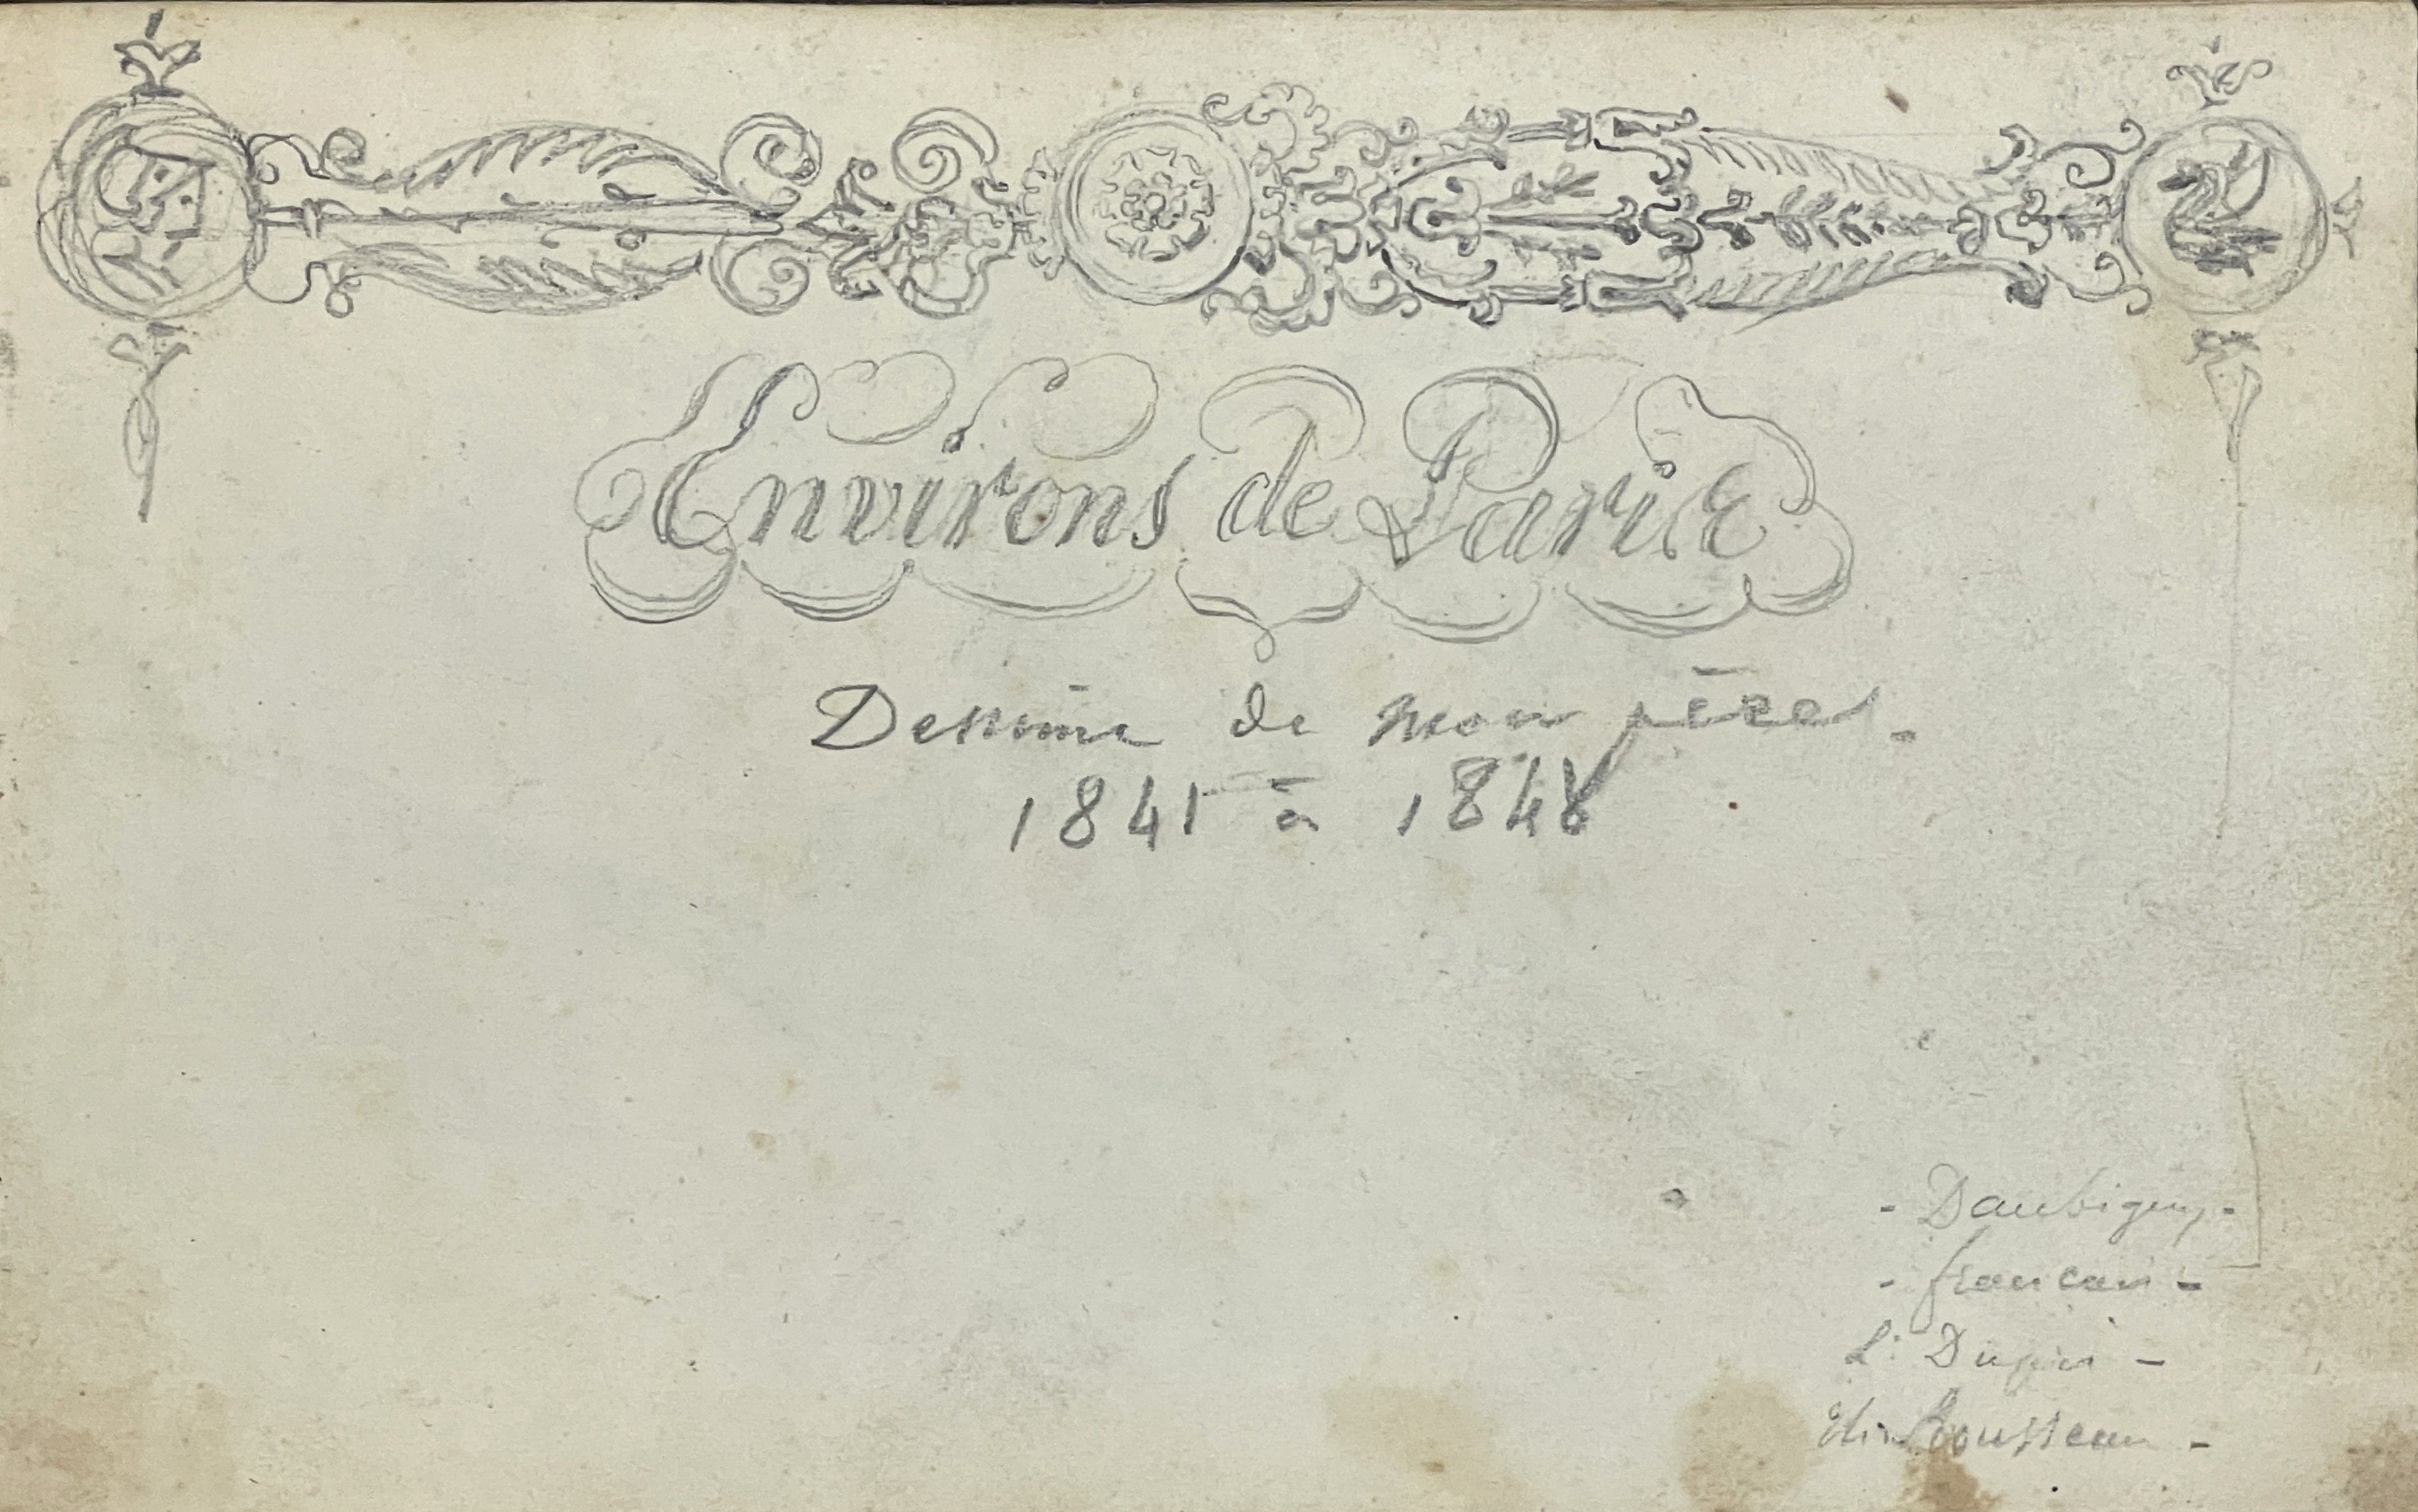 Environs de Paris
Dessins de mon père.
1841 à 1848
- Daubigny -
- français -
J. Dupré -
Th. Rousseau -